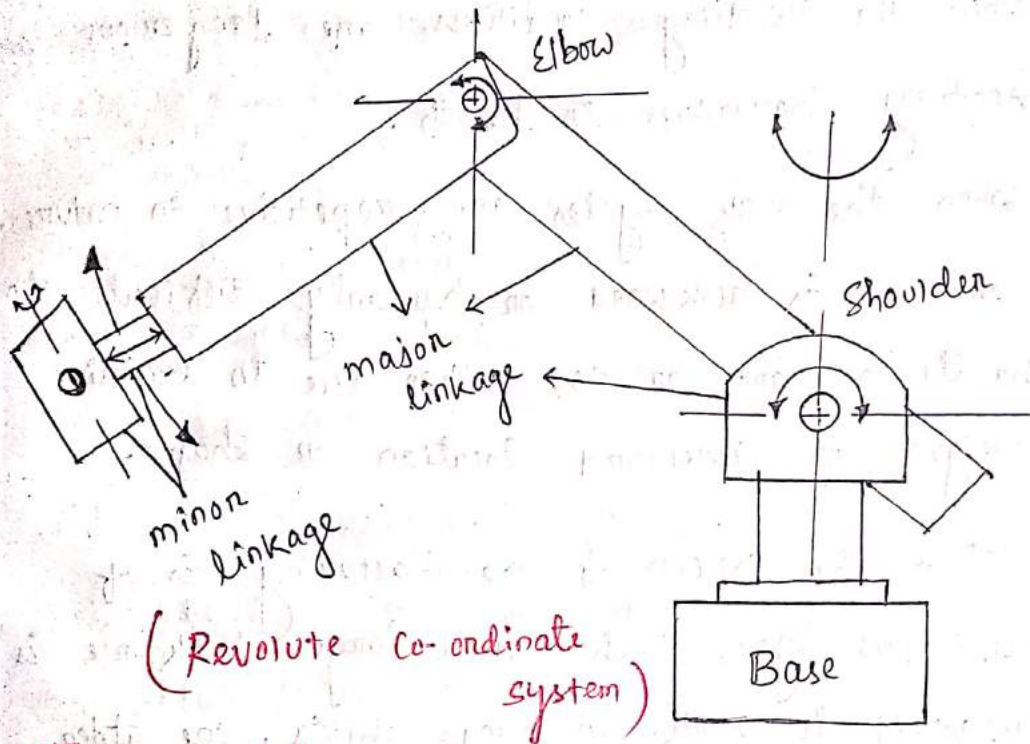 Elbow
Shoulder
major
linkage
minor
linkage
(Revolute Co-ordinate
system)
Base